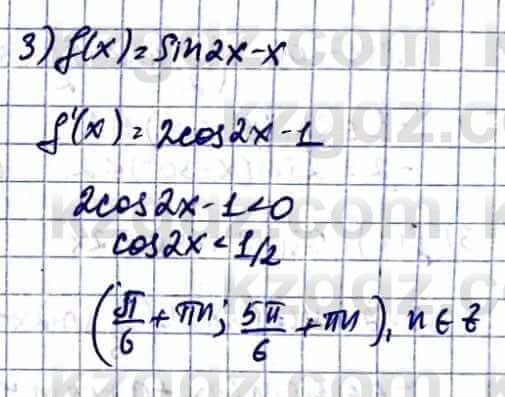 3) f(x) = sin2x - x
f'(x) = 2cos2x - 1
2cos2x - 1 < 0
cos2x < 1/2
(π/6 + πn; 5π/6 + πn), n ∈ Z